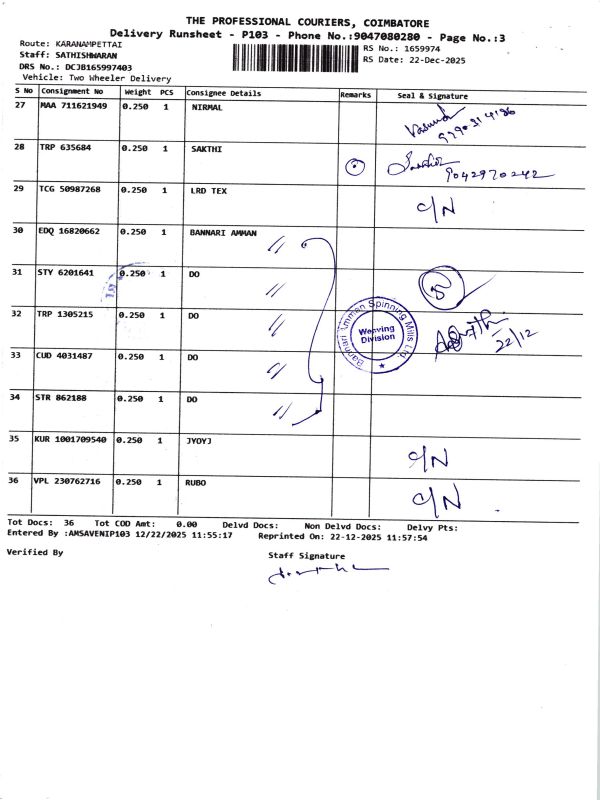 THE PROFESSIONAL COURIERS, COIMBATORE
Delivery Runsheet - P103 - Phone No.:9047080280 - Page No.:3
Route: KARANAMPETTAI
RS No.: 1659974
Staff: SATHISHWARAN
RS Date: 22-Dec-2025
DRS No.: DCJB165997403
Vehicle: Two Wheeler Delivery
S No Consignment No Weight PCS Consignee Details Remarks Seal & Signature
27 MAA 711621949 0.250 1 NIRMAL
28 TRP 635684 0.250 1 SAKTHI
9042970242
29 TCG 50987268 0.250 1 LRD TEX C/N
30 EDQ 16820662 0.250 1 BANNARI AMMAN //
31 STY 6201641 0.250 1 DO // 5
32 TRP 1305215 0.250 1 DO //
Bannari Amman Spinning Mills Ltd.
Weaving
Division
22/12
33 CUD 4031487 0.250 1 DO //
34 STR 862188 0.250 1 DO //
35 KUR 1001709540 0.250 1 JYOYJ C/N
36 VPL 230762716 0.250 1 RUBO C/N
Tot Docs: 36 Tot COD Amt: 0.00 Delvd Docs: Non Delvd Docs: Delvy Pts:
Entered By :AMSAVENIP103 12/22/2025 11:55:17 Reprinted On: 22-12-2025 11:57:54
Verified By Staff Signature